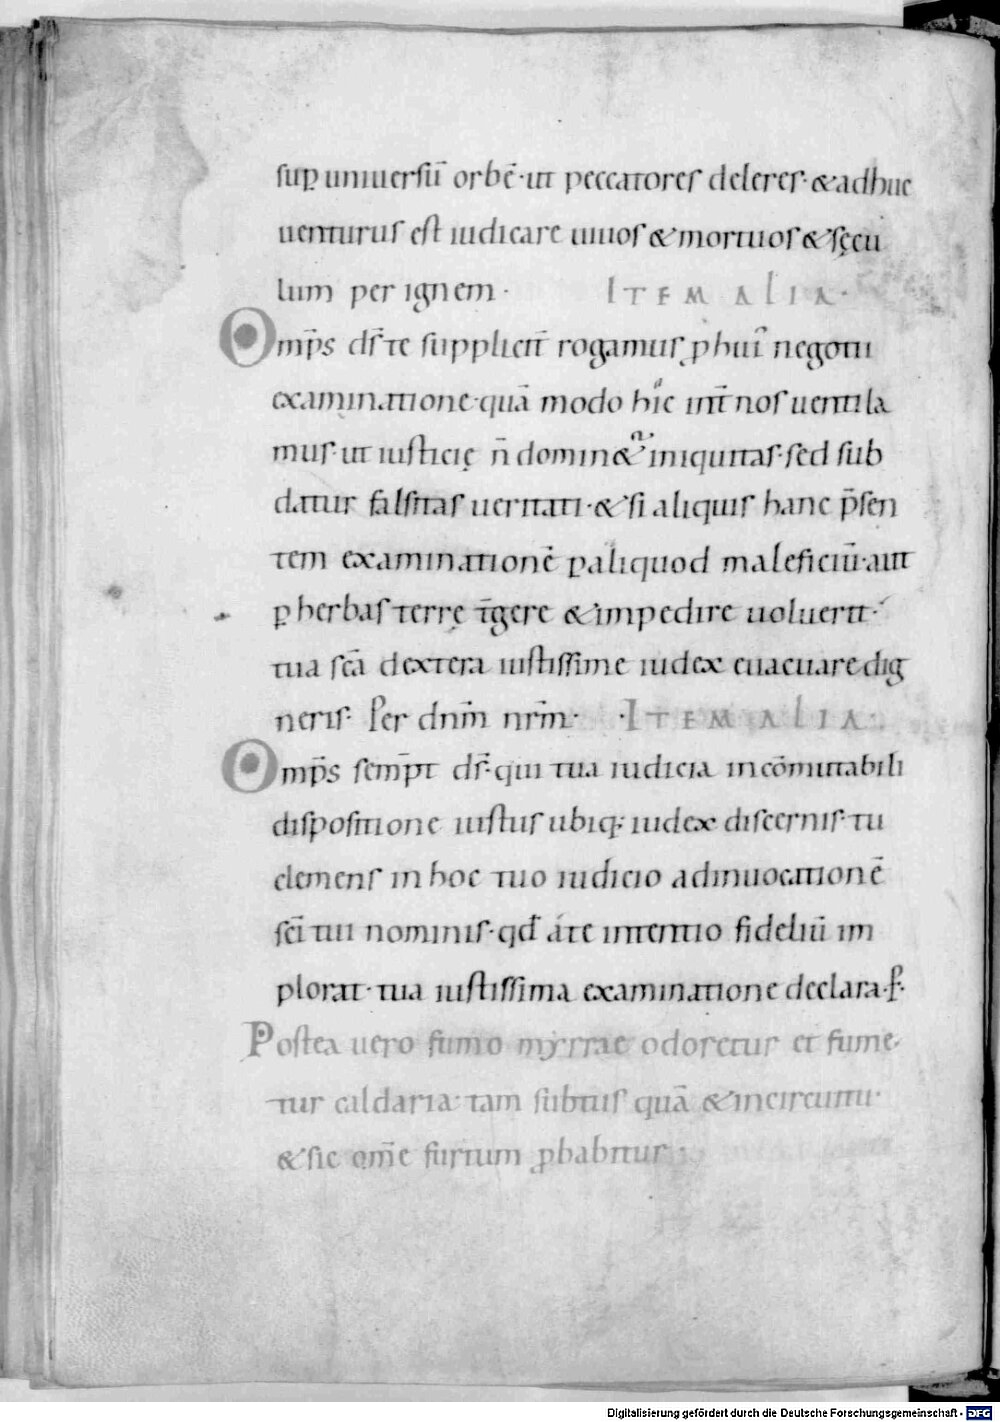 sup̱ uniuersū orbē· ut peccatores deleres· & adhuc
uenturus est iudicare uiuos & mortuos & sęcu
lum per ignem·
ITEM ALIA·
Omp̄s ds̄ te supplicit̄ rogamus ꝓ hui᷒ negotii
examinatione· quā modo hi᷒c int̄ nos uentila
mus· ut iusticię n̄ domin&ur iniquitas· sed sub
datur falsitas ueritati· & si aliquis hanc p̄sen
tem examinationē ꝑ aliquod maleficiū· aut
ꝑ herbas terrę t̄gere & impedire uoluerit·
tua sc̄a dextera iustissime iudex euacuare dig
neris· Per dnm̄ nrm̄·
·ITEM ALIA·
Omp̄s semp̄t ds̄· qui tua iudicia incōmutabili
dispositione iustus ubiq; iudex discernis· tu
clemens in hoc tuo iudicio ad inuocationē
sc̄i tui nominis· qd̄ a te intentio fideliū im
plorat· tua iustissima examinatione declara· P̄·
Postea uero fumo myrrae odoretur et fume
tur caldaria· tam subtus quā & in circuitu·
& sic om̄e furtum ꝓhabitur·
Digitalisierung gefördert durch die Deutsche Forschungsgemeinschaft - DFG